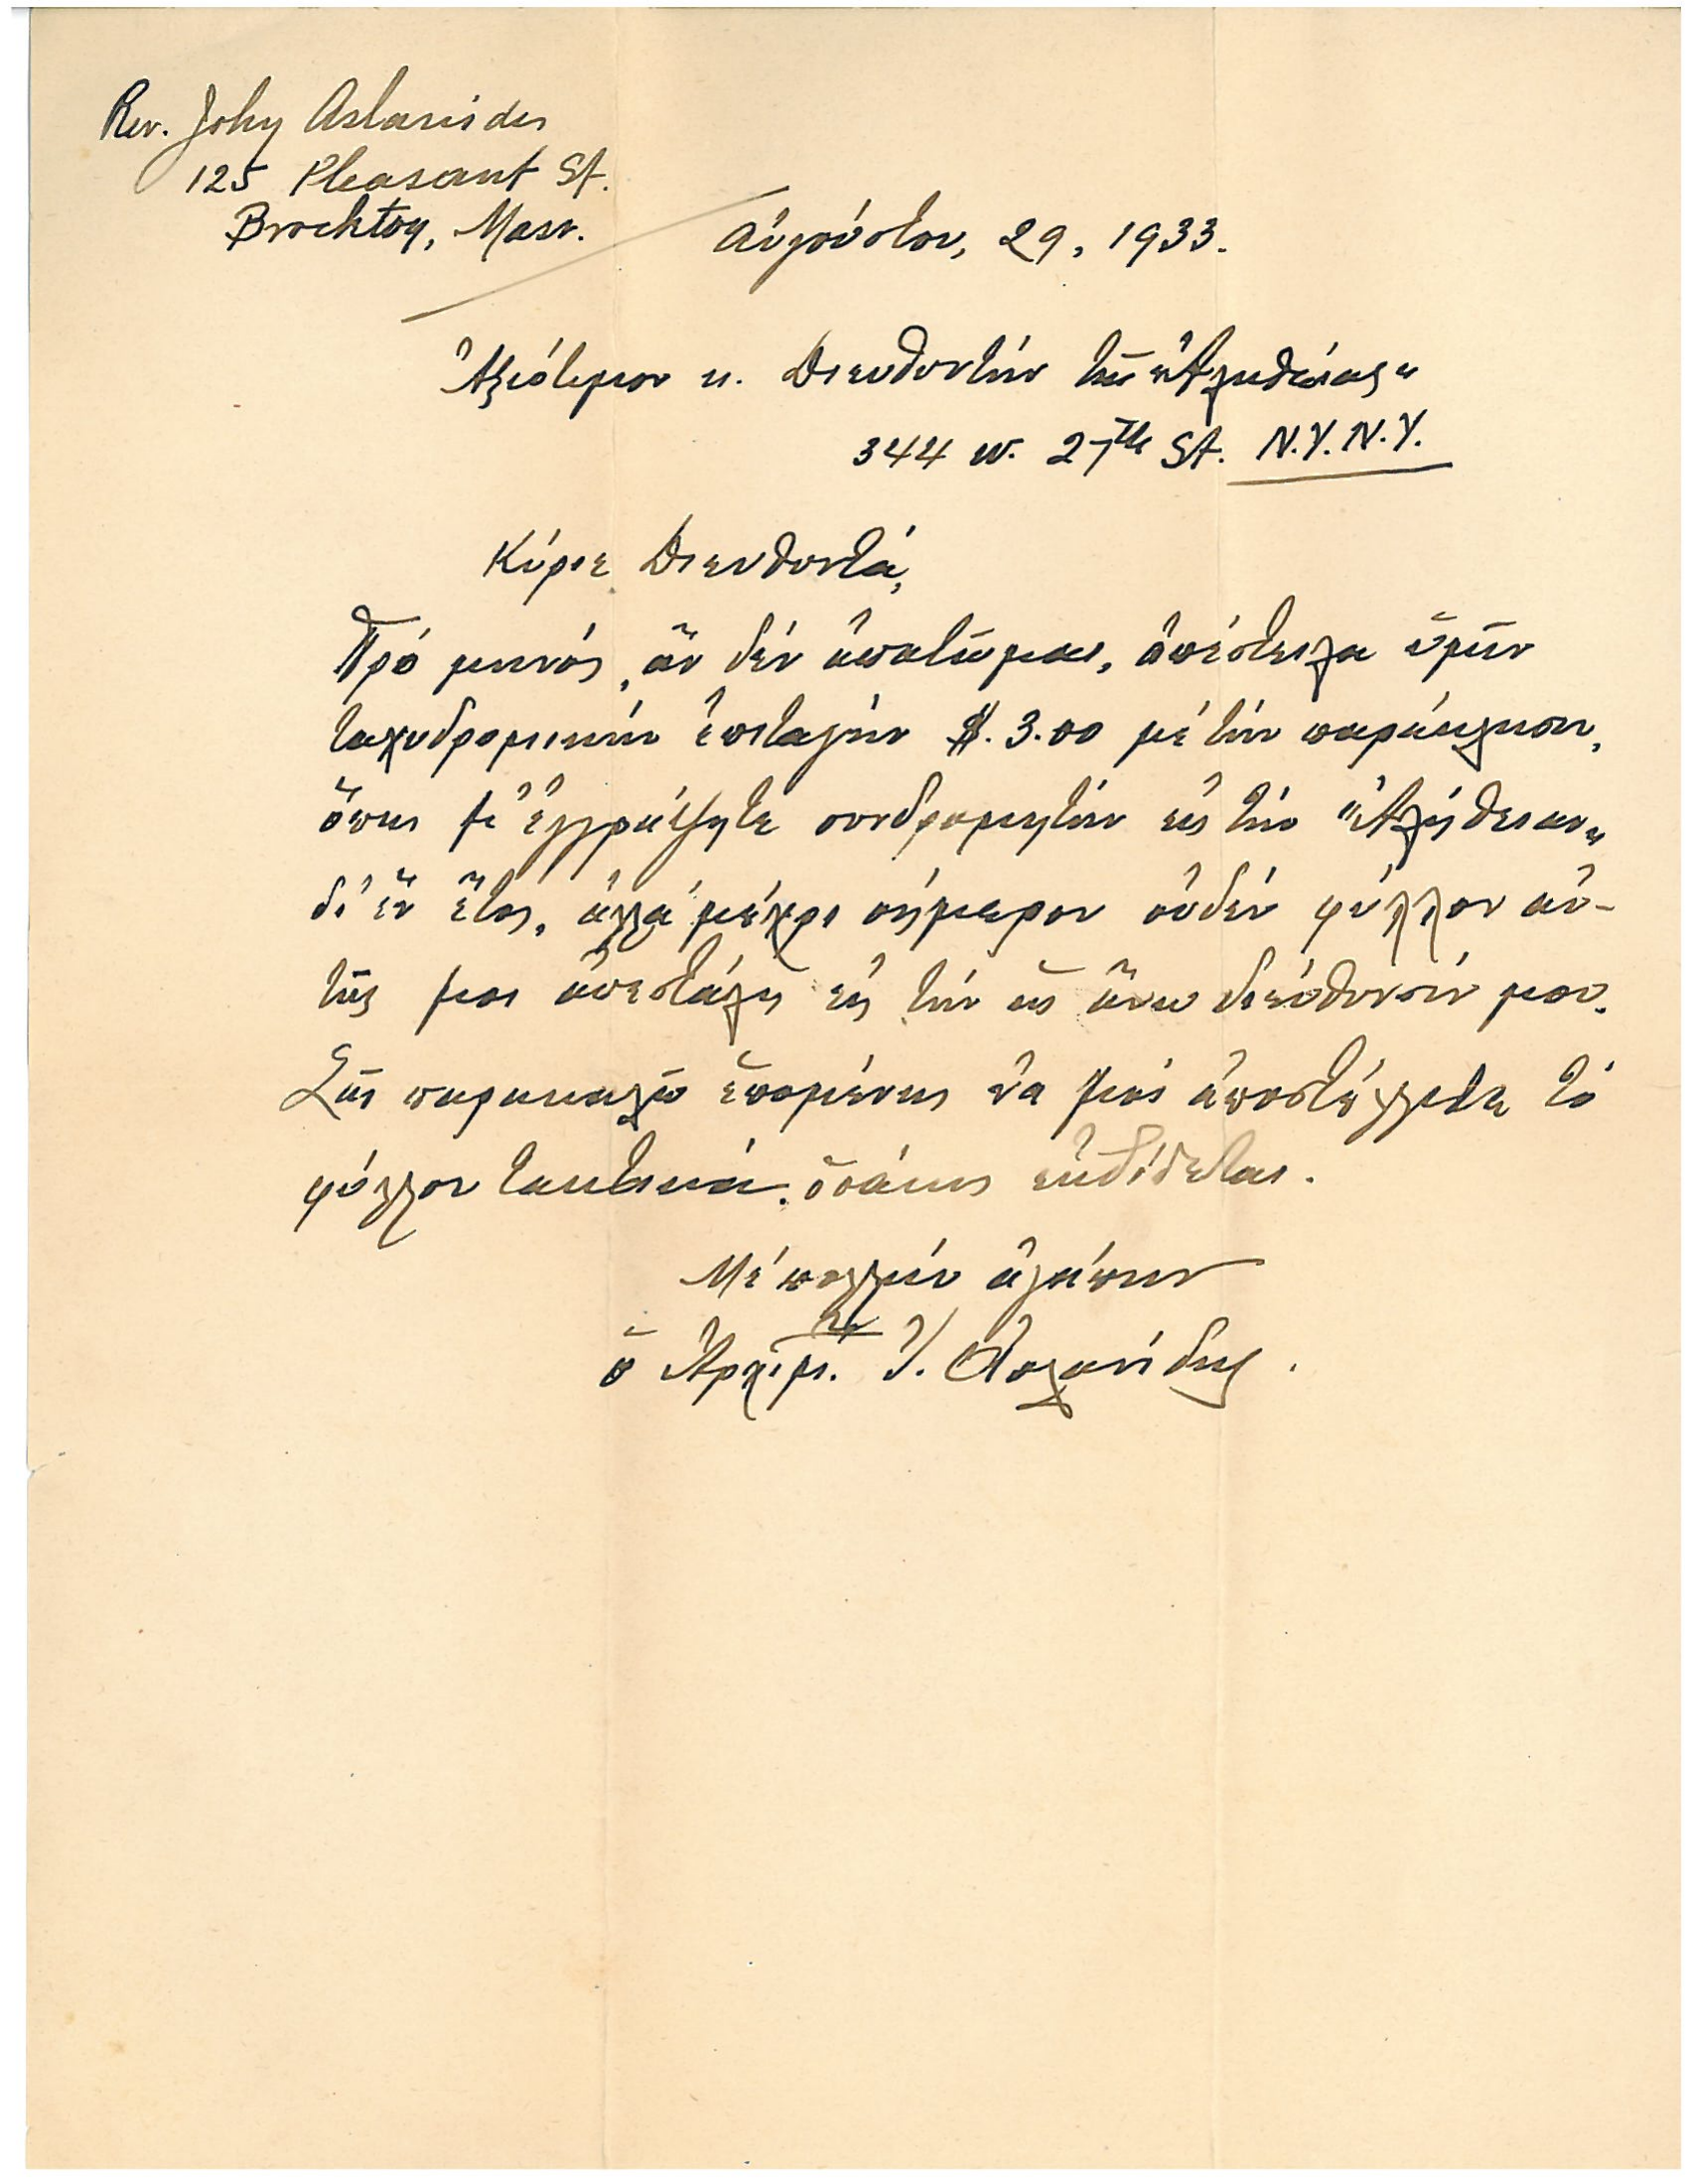 Rev. John Aslanides
125 Pleasant St.
Brockton, Mass.
Αὐγούστου, 29, 1933.
Ἀξιότιμον κ. Διευθυντὴν τῆς "Ἀληθείας"
344 w. 27th St. N.Y. N.Y.
Κύριε Διευθυντά,
Πρὸ μηνός, ἂν δὲν ἀπατῶμαι, ἀπέστειλα ὑμῖν
ταχυδρομικὴν ἐπιταγὴν $. 3.00 μὲ τὴν παράκλησιν,
ὅπως μ' ἐγγράψητε συνδρομητὴν εἰς τὴν "Ἀλήθειαν"
δι' ἓν ἔτος, ἀλλὰ μέχρι σήμερον οὐδὲν φύλλον αὐ-
τῆς μοι ἀπεστάλη εἰς τὴν ὡς ἄνω διεύθυνσίν μου.
Σᾶς παρακαλῶ ἑπομένως νὰ μοὶ ἀποστέλλετε τὸ
φύλλον τακτικά, ὁσάκις ἐκδίδεται.
Μὲ πολλὴν ἀγάπην
ὁ Ἀρχιμ. Ἰ. Ἀσλανίδης.